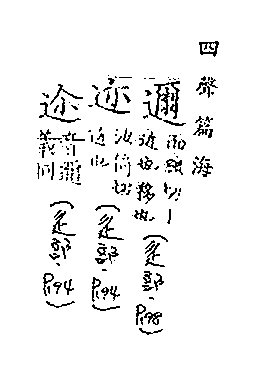 四聲篇海
邇 而綺切
近也移也
(辵部．P.198)
迩 汝倚切
近也
(辵部．P.194)
迩 音邇
義同
(辵部．P.194)